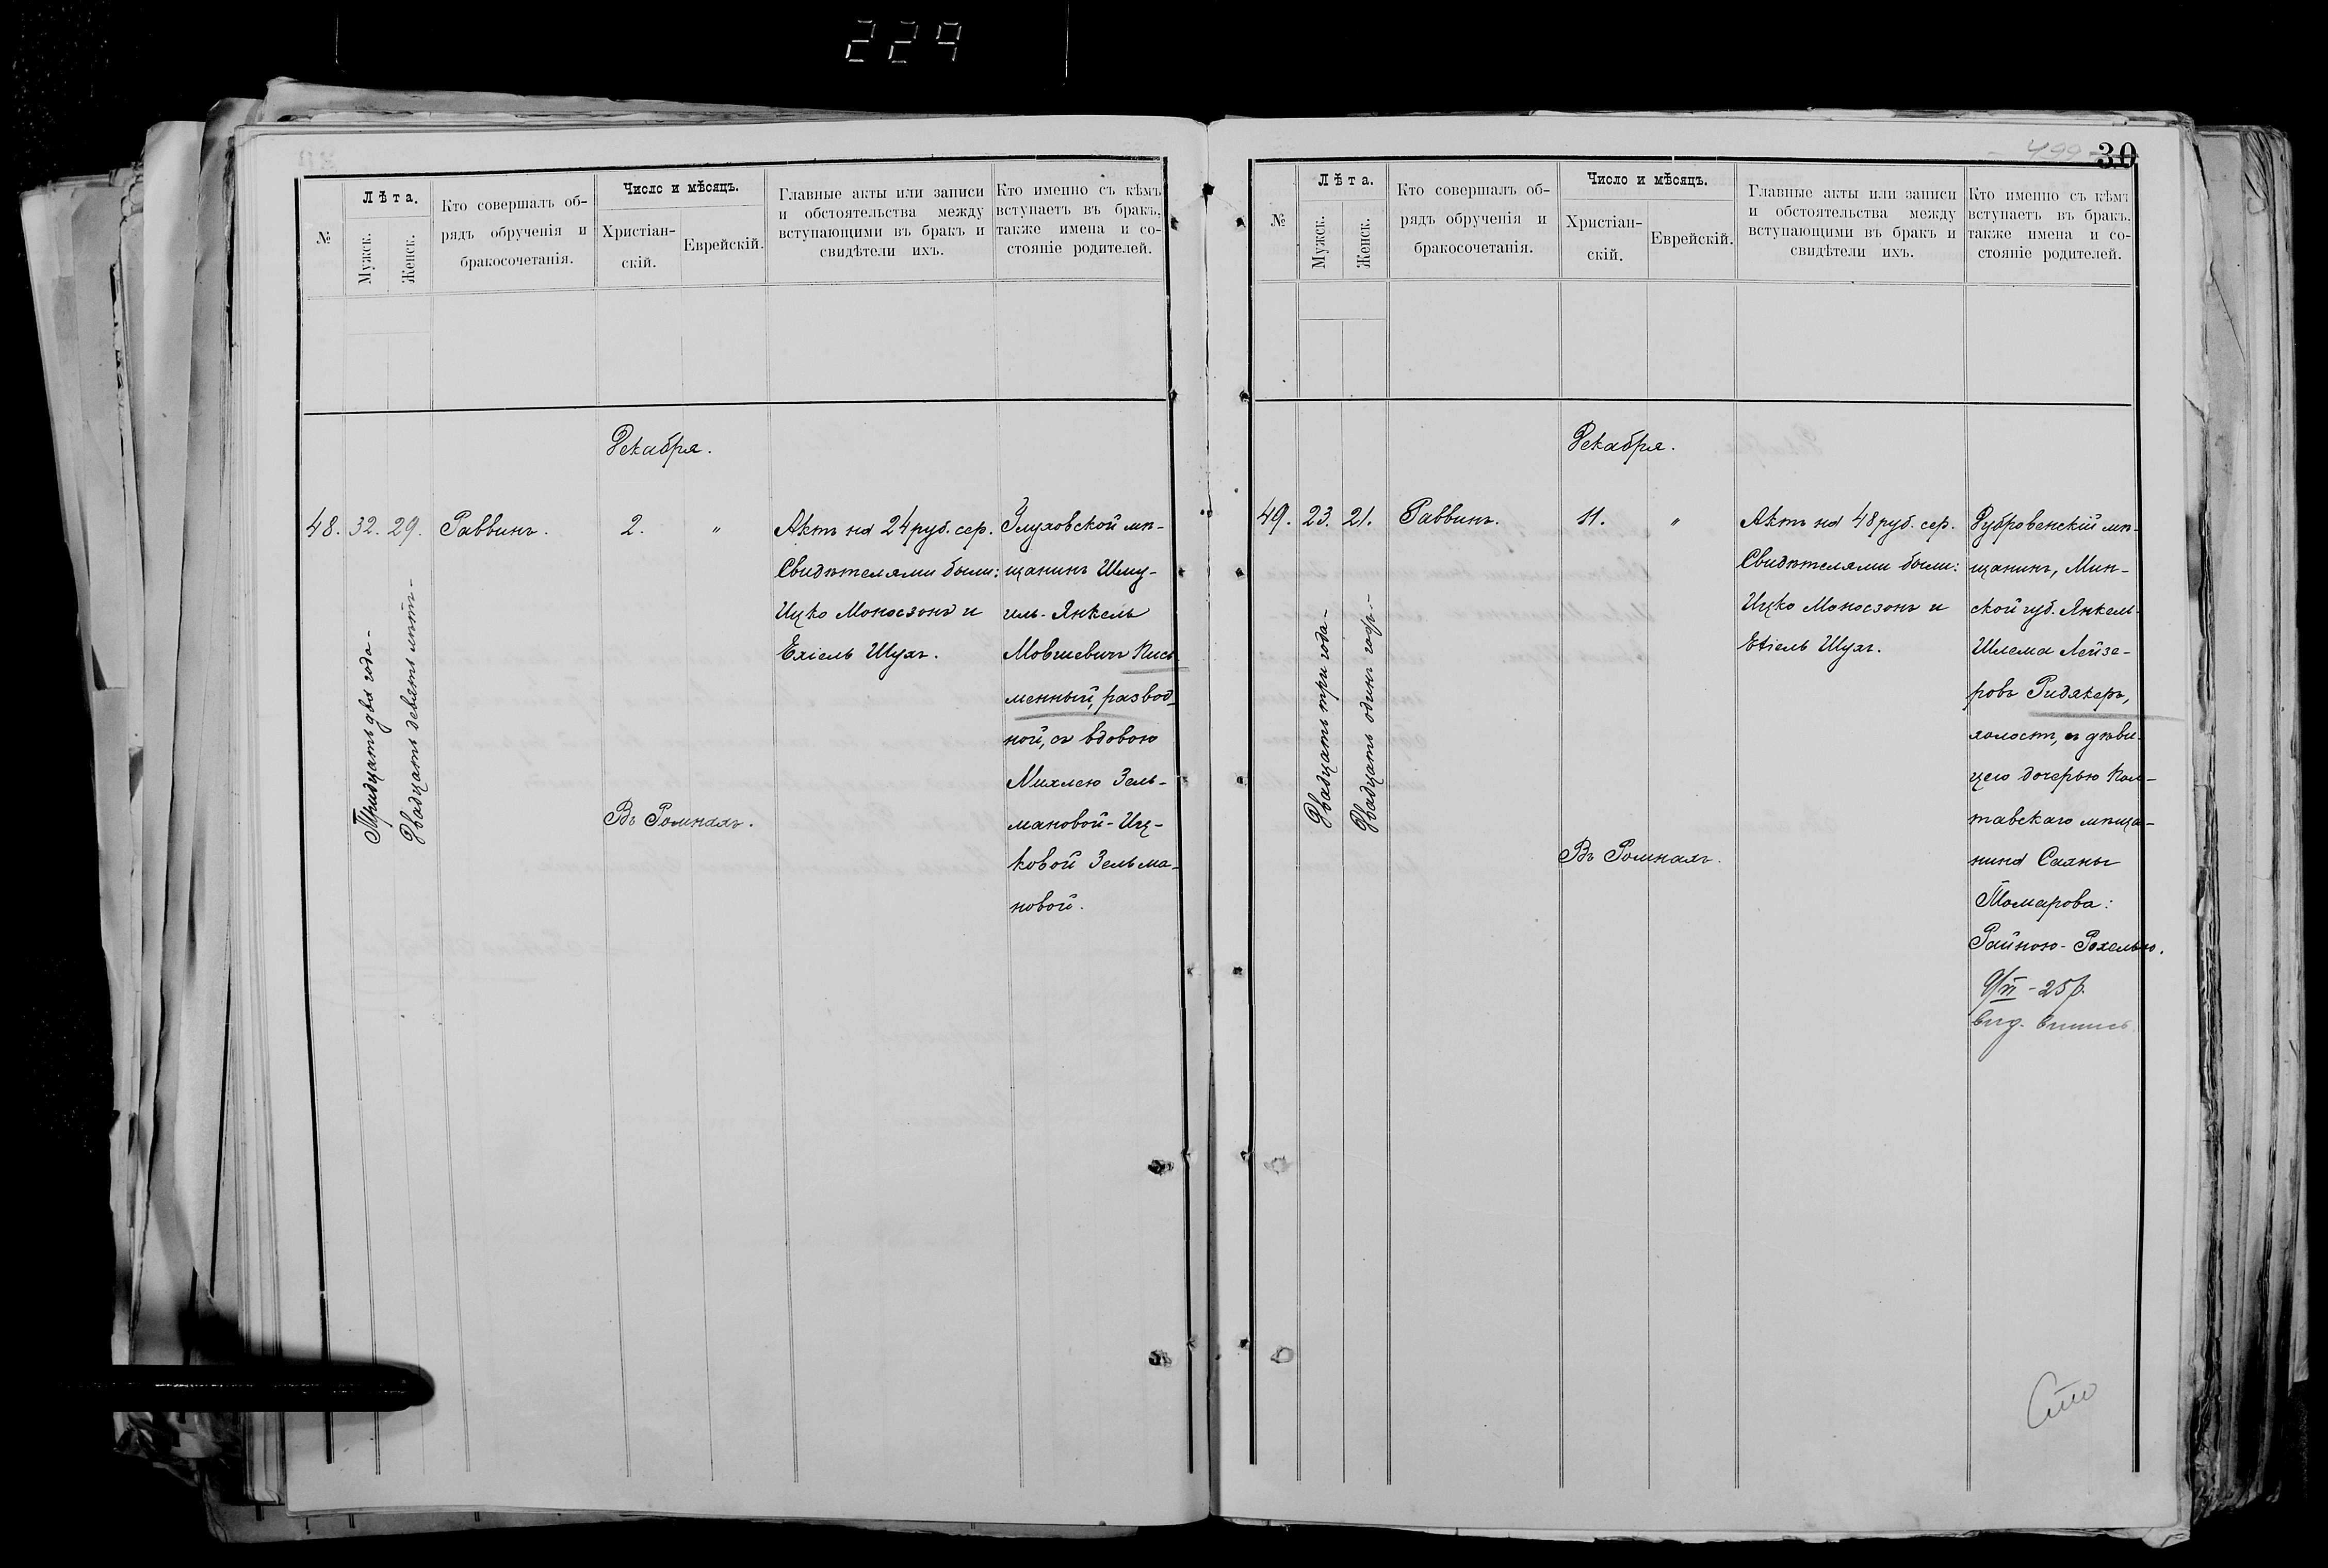 224
№
Лѣта.
Мужск.
Женск.
Кто совершалъ об-
рядъ обрученія и
бракосочетанія.
Число и мѣсяцъ.
Христіан-
скій.
Еврейскій.
Главные акты или записи
и обстоятельства между
вступающими въ бракъ и
свидѣтели ихъ.
Кто именно съ кѣмъ
вступаетъ въ бракъ,
также имена и со-
стояніе родителей.
Декабря.
48. 32. 29.
Тридцать два года-
Двадцать девять лѣтъ-
Раввинъ.
2.
"
Въ Ромнахъ.
Актъ на 24 руб. сер.
Свидѣтелями были:
Ицко Моносзонъ и
Ехіель Шухъ.
Глуховской мѣ-
щанинъ Шму-
иль-Янкель
Мовшевичъ Кись-
менный, развод-
ной, съ вдовою
Михлею Зель-
мановой-Иц-
ковой Зельма-
новой.
499
30
№
Лѣта.
Мужск.
Женск.
Кто совершалъ об-
рядъ обрученія и
бракосочетанія.
Число и мѣсяцъ.
Христіан-
скій.
Еврейскій.
Главные акты или записи
и обстоятельства между
вступающими въ бракъ и
свидѣтели ихъ.
Кто именно съ кѣмъ
вступаетъ въ бракъ.
также имена и со-
стояніе родителей.
Декабря.
49. 23. 21.
Двадцать три года-
Двадцать одинъ годъ-
Раввинъ.
11.
"
Въ Ромнахъ.
Актъ на 48 руб. сер.
Свидѣтелями были:
Ицко Моносзонъ и
Ехіель Шухъ.
Дубровенскій мѣ-
щанинъ, Мин-
ской губ. Янкель-
Шлема Лейзе-
ровъ Ридякеръ,
холостъ, съ дѣви-
цею дочерью Кон-
тавскаго мѣща-
нина Сахны
Томарова:
Райною-Рохелью.
9/VI - 25 г.
выд. выпись